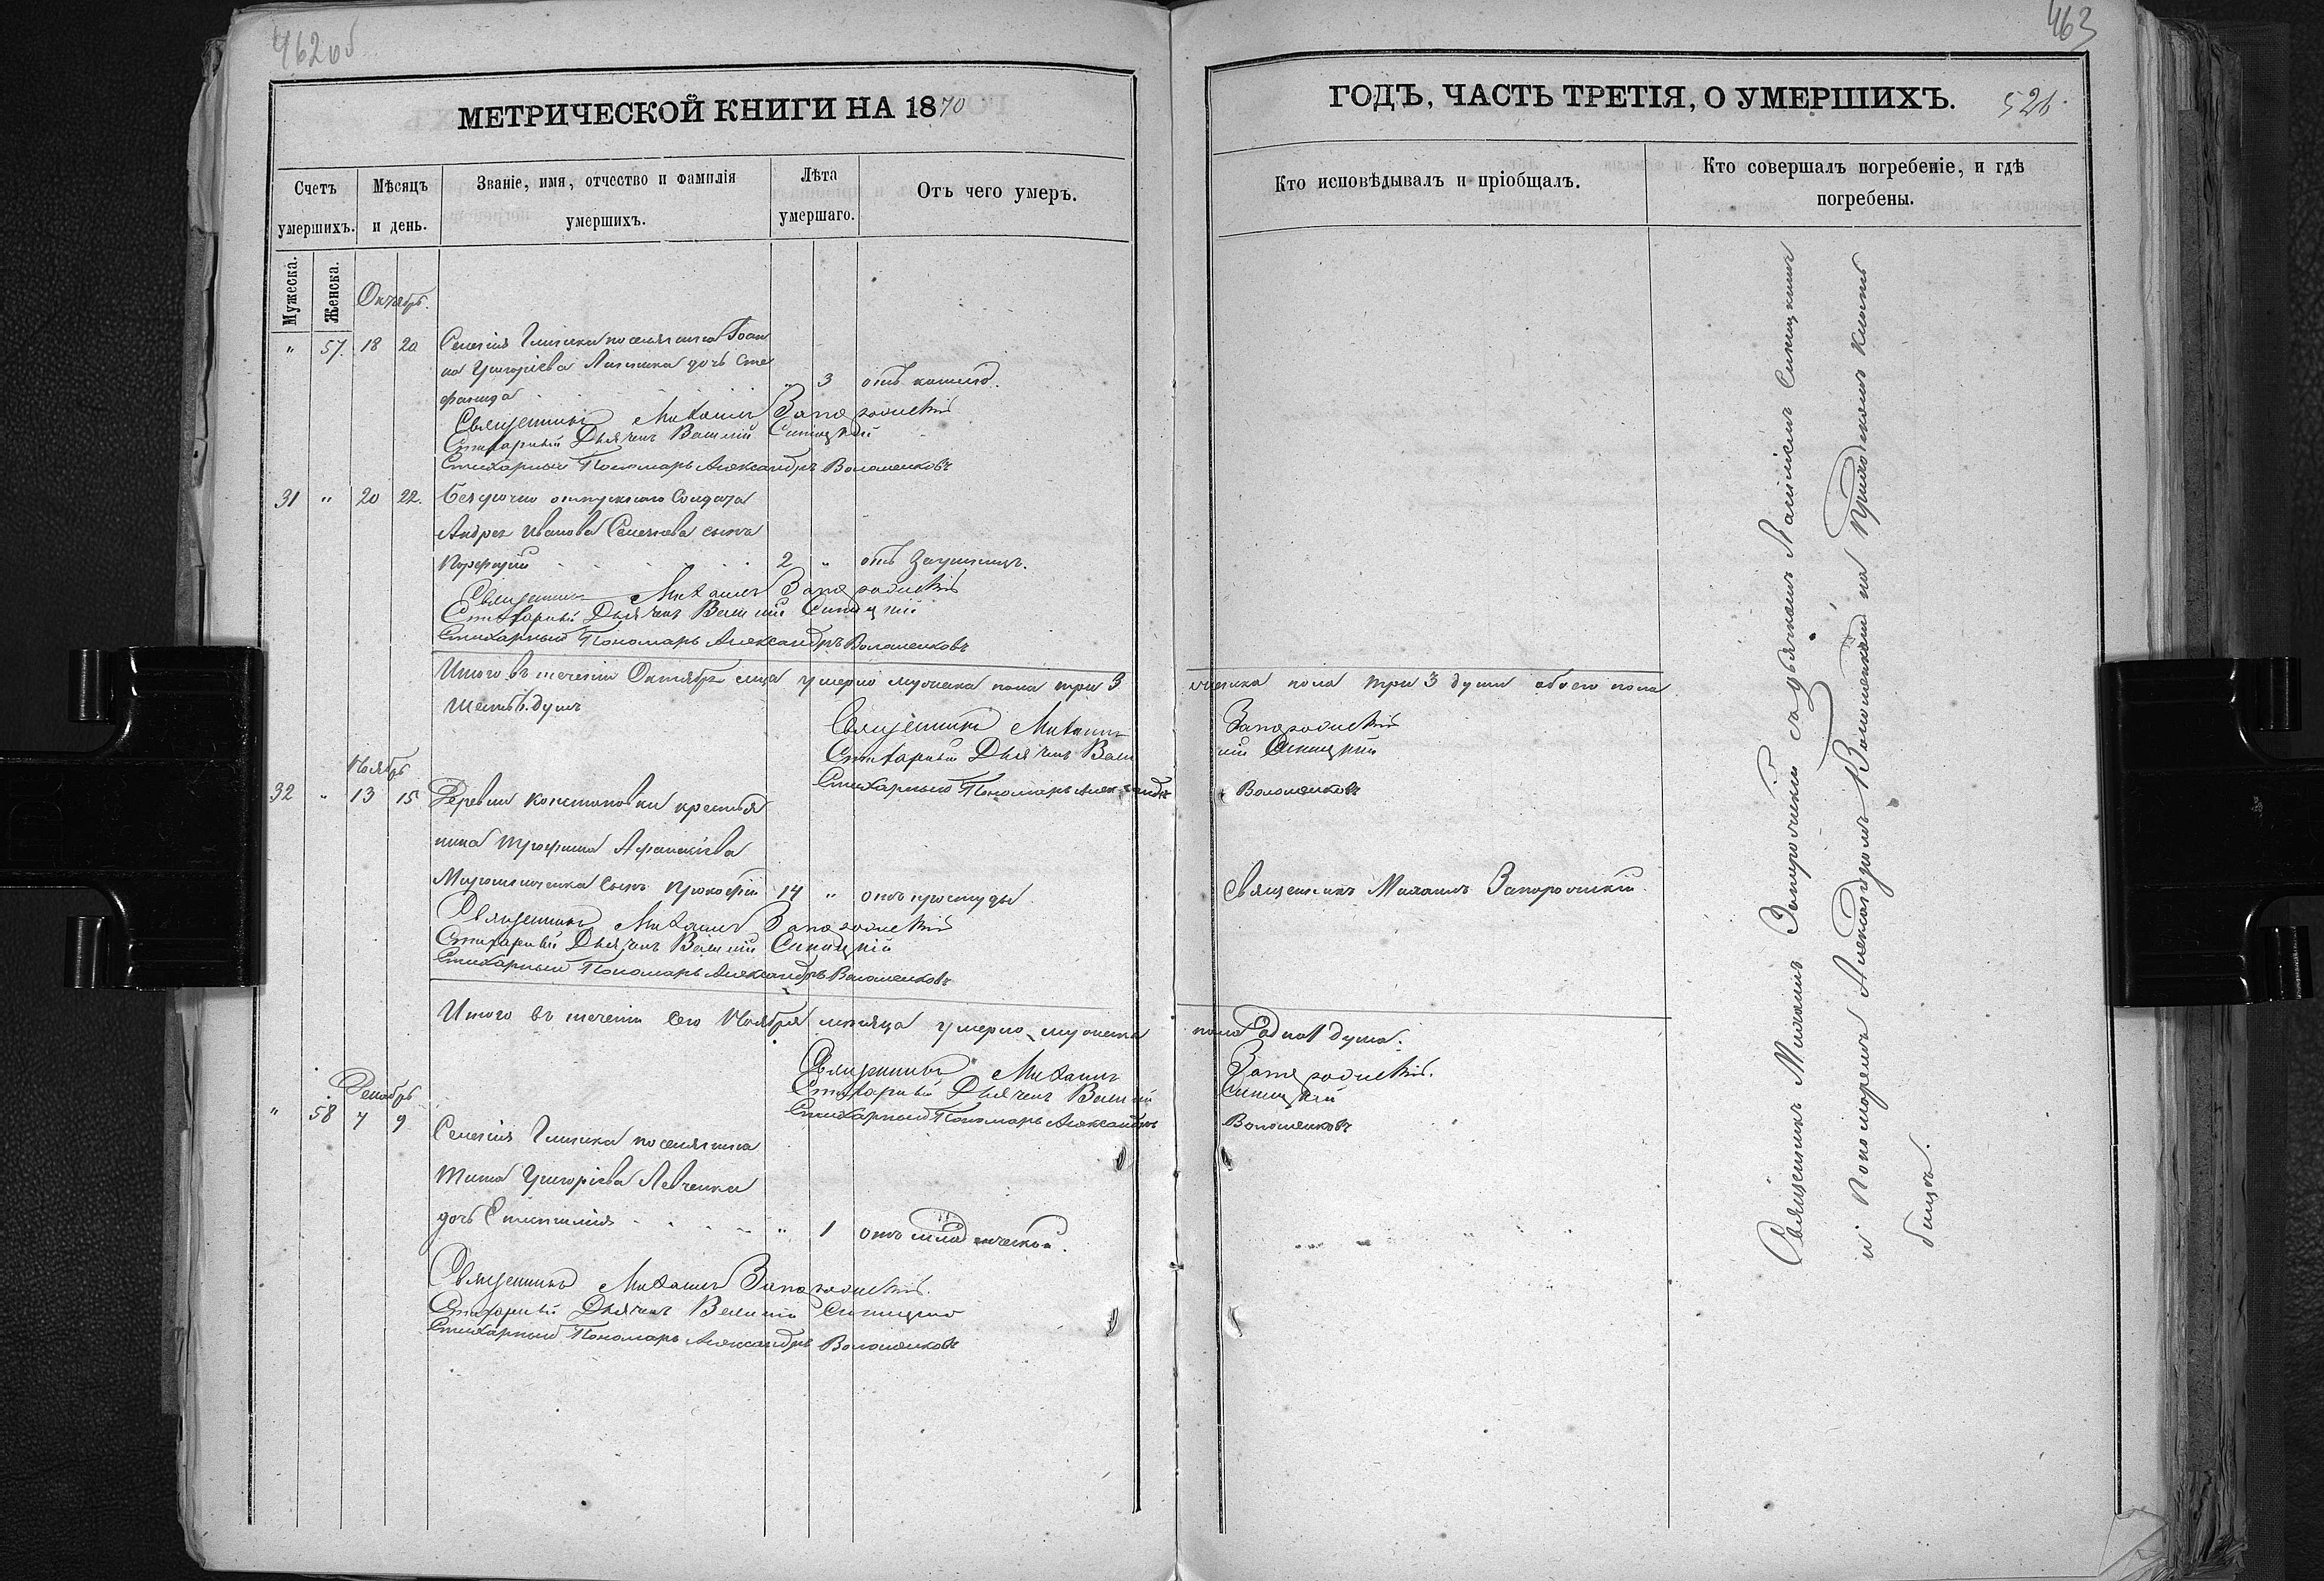 462об
МЕТРИЧЕСКОЙ КНИГИ НА 1870
Счетъ умершихъ.
Мѣсяцъ и день.
Званіе, имя, отчество и фамилія умершихъ.
Лѣта умершаго.
Отъ чего умеръ.
Мужеска.
Женска.
Октябрь.
" 57. 18 20 Селенія Глинска поселянина Іоан
на Григоріева дочь Сте
фанида " 3 отъ кашлю.
Священникъ Михаилъ Запорожскій
Стихарный Дьячекъ Василій Синицкій
Стихарный Пономарь Александръ Волошенковъ
31 " 20 22. Безсрочно отпускнаго Солдата
Андрея Иванова Семенова сынъ
Порфирій 2 " отъ Заушницъ.
Священникъ Михаилъ Запорожскій
Стихарный Дьячекъ Василій Синицкій
Стихарный Пономарь Александръ Волошенковъ
Итого въ теченіи Октября м-ца умерло мужеска пола три 3
шесть 6. душъ
Священникъ Михаилъ
Стихарный Дьячекъ Васи
Стихарный Пономарь Александръ
Ноябрь
32 " 13 15 Деревни крестья
нина Трофима Афанасіева
Мирошниченка сынъ Прокофій 14 " отъ простуды
Священникъ Михаилъ Запорожскій
Стихарный Дьячекъ Василій Синицкій
Стихарный Пономарь Александръ Волошенковъ
Итого въ теченіи сего Ноября мѣсяца умерло мужеска
Священникъ Михаилъ
Стихарный Дьячекъ Василій
Стихарный Пономарь Александръ
Декабрь
" 58 7 9 Селенія Глинска поселянина
Тита Григоріева Левченка
дочь " 1 отъ младенческой.
Священникъ Михаилъ Запорожскій.
Стихарный Дьячекъ Василій Синицкій
Стихарный Пономарь Александръ Волошенковъ
463
ГОДЪ, ЧАСТЬ ТРЕТІЯ, О УМЕРШИХЪ.
526.
Кто исповѣдывалъ и пріобщалъ.
Кто совершалъ погребеніе, и гдѣ погребены.
женска пола три 3 души обоего пола
Запорожскій
лій Синицкій
Волошенковъ
Священникъ Михаилъ Запорожскій.
пола одна 1 душа.
Запорожскій.
Синицкій
Волошенковъ
Священникъ Михаилъ Запорожскій съ дьячкомъ Василіемъ Синицкимъ
и Пономаремъ Александромъ Волошенковымъ на Приходскомъ кладь
бищѣ.